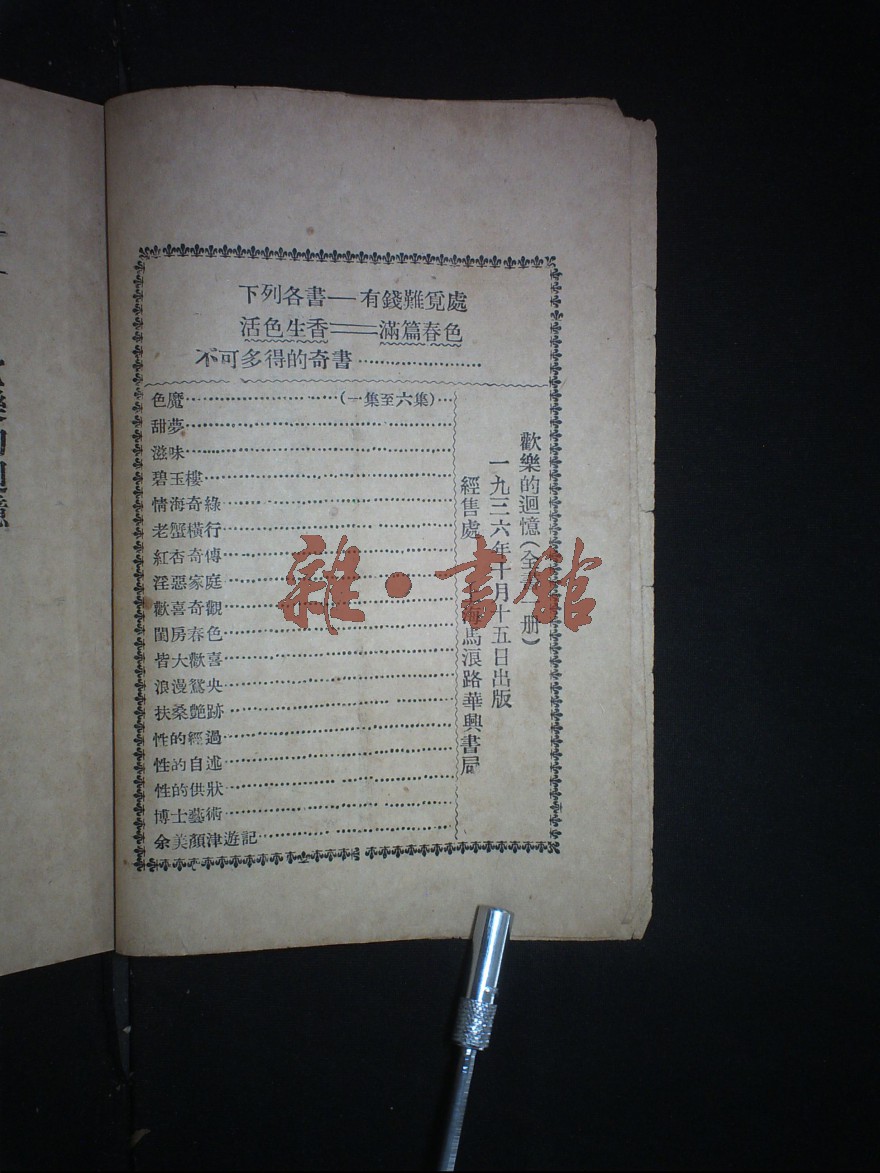 下列各書—有錢難覓處
活色生香══滿篇春色
不可多得的奇書………………
色魔……………………(一集至六集)…
甜夢
滋味
碧玉樓
情海奇緣
老蟹橫行
紅杏奇傳
淫惡家庭
歡喜奇觀
閨房春色
皆大歡喜
浪漫鴛央
扶桑艶跡
性的經過
性的自述
性的供狀
博士藝術
余美顏津遊記
歡樂的迴憶(全書一册)
一九三六年十月十五日出版
經售處 上海馬浪路華興書局
雜·書館